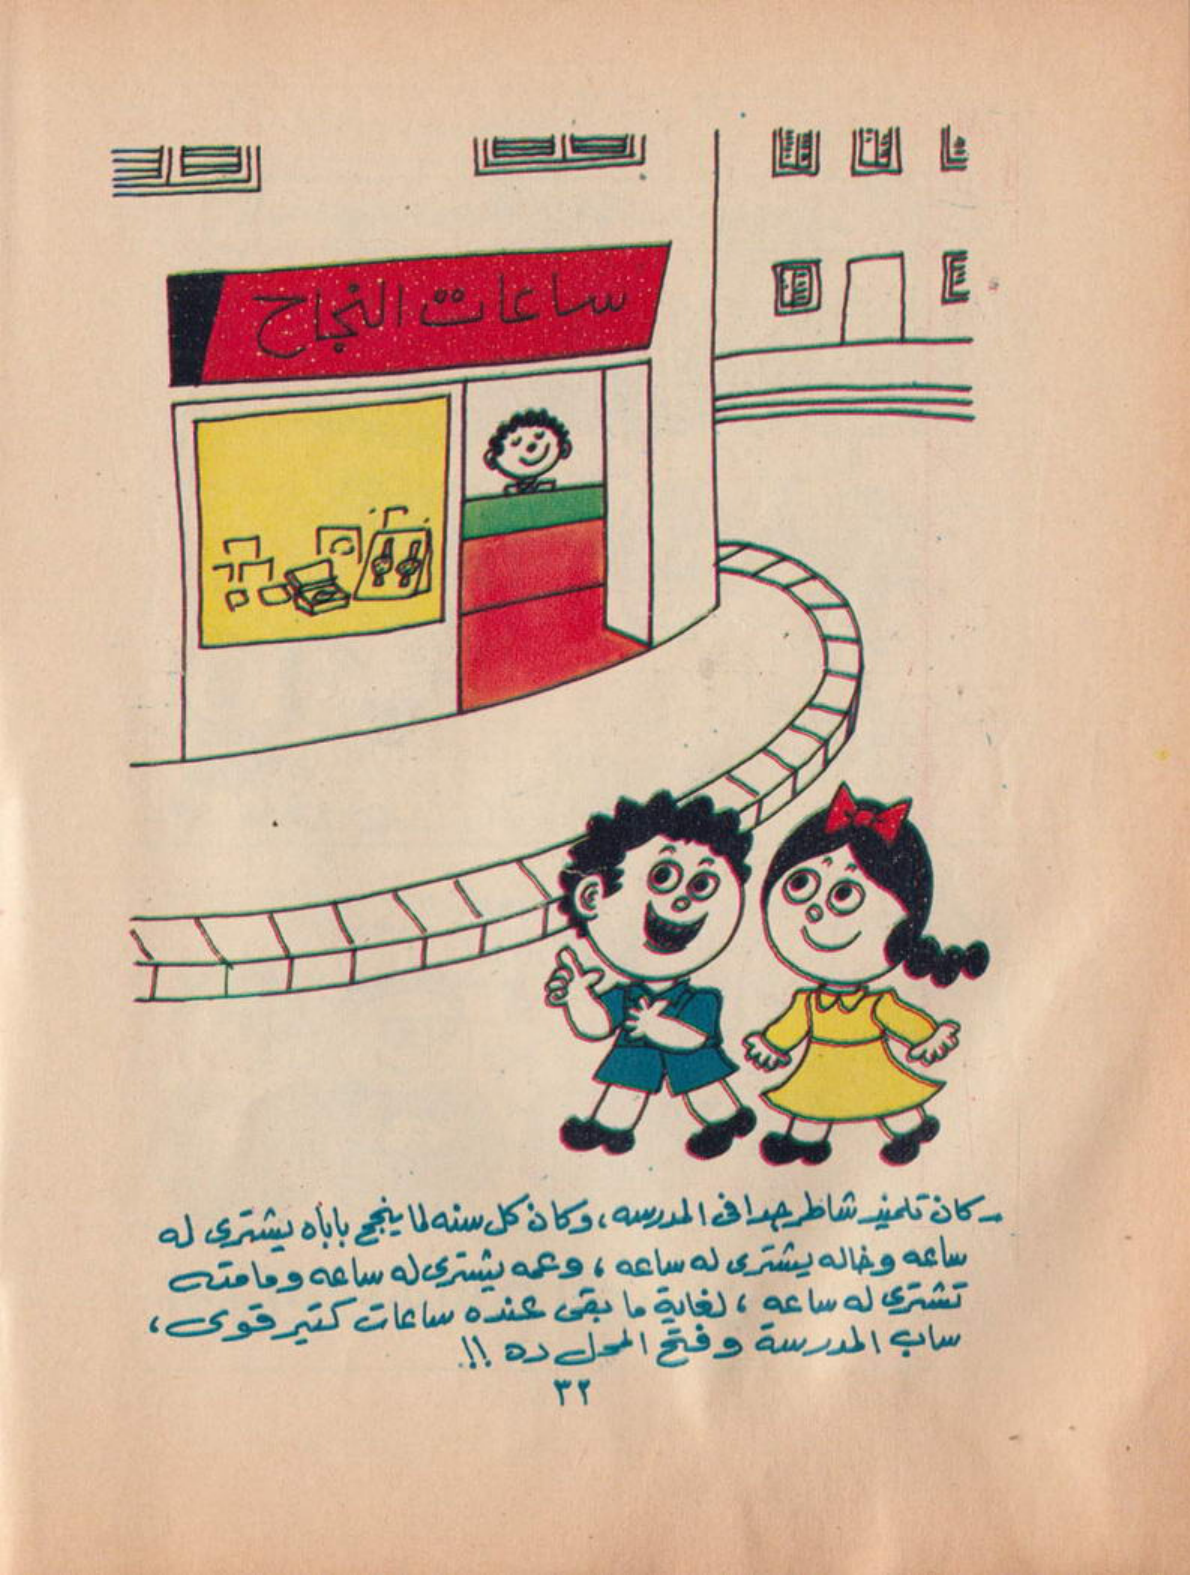 ساعات النجاح
ـ كان تلميذ شاطر جدا فى المدرسه ، وكان كل سنه لما ينجح باباه يشترى له
ساعه وخاله يشترى له ساعه ، وعمه يشترى له ساعه ومامته
تشترى له ساعه ، لغاية ما بقى عنده ساعات كتير قوى ،
ساب المدرسة وفتح المحل ده !!.
٣٢